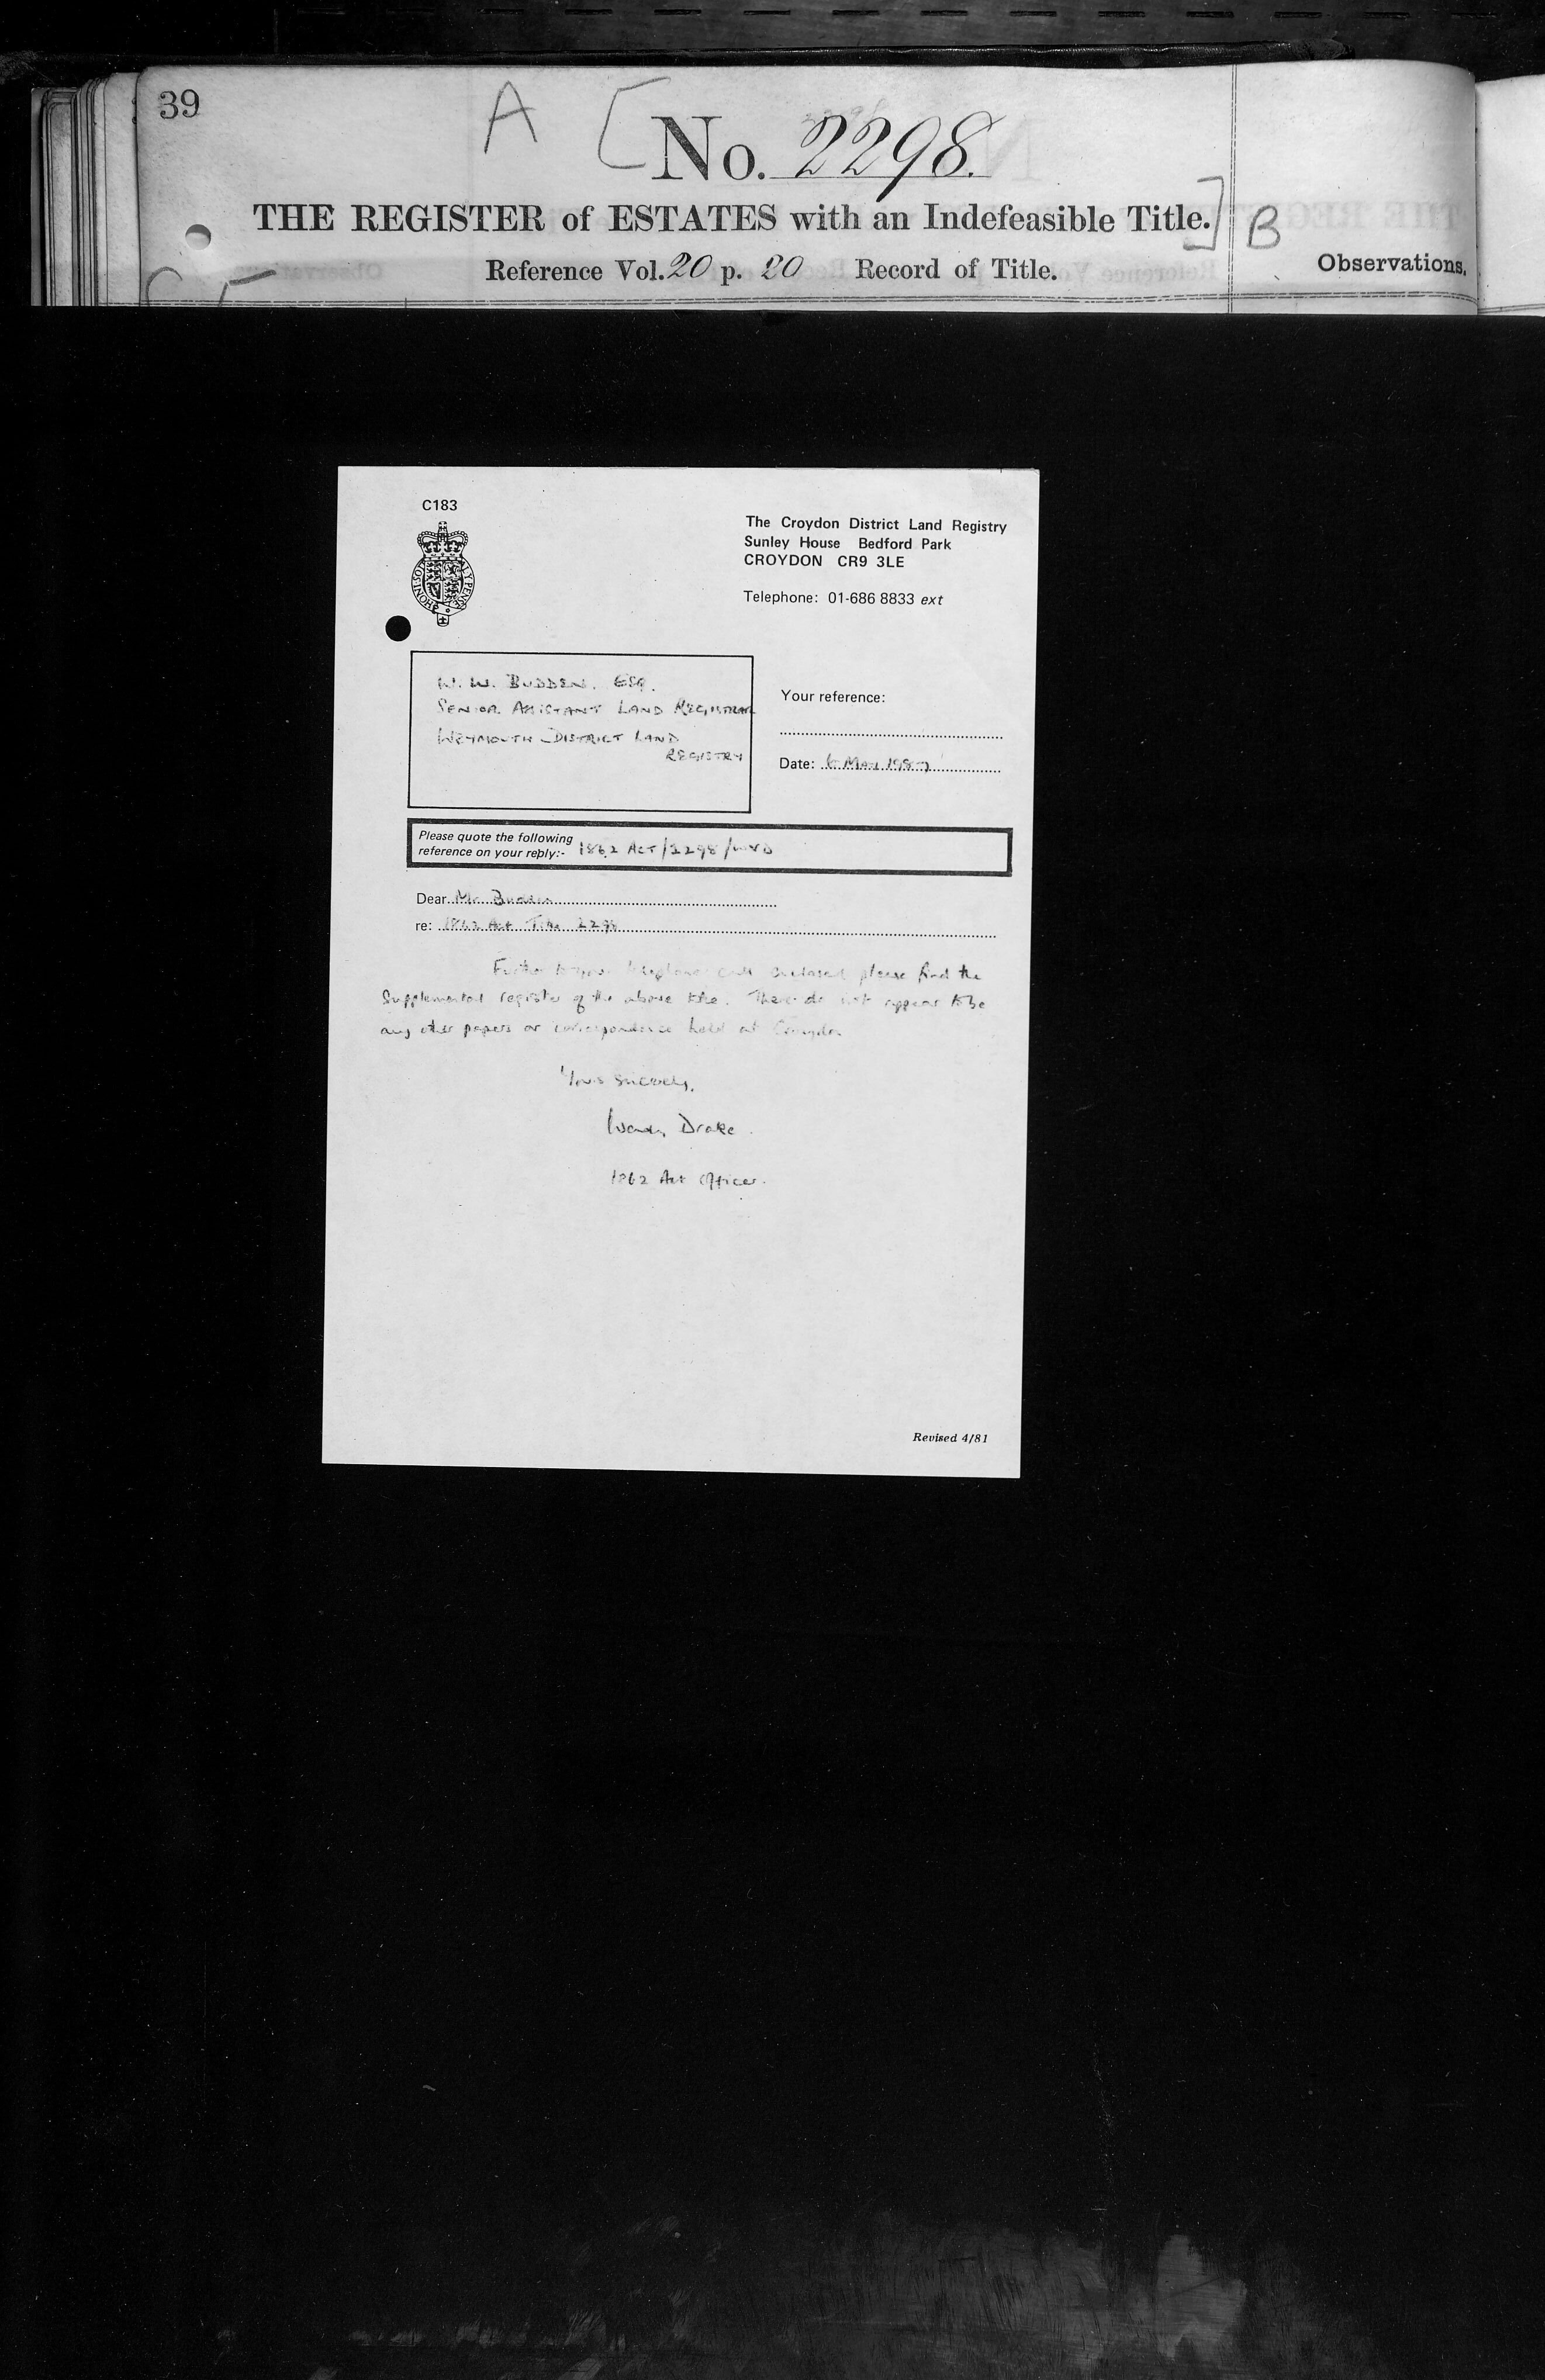 39
A [ No. 2298.
THE REGISTER of ESTATES with an Indefeasible Title. ] B
Reference Vol. 20 p. 20 Record of Title.
Observations.
C183
The Croydon District Land Registry
Sunley House Bedford Park
CROYDON CR9 3LE
Telephone: 01-686 8833 ext
W. W. BUDDEN. ESQ.
SENIOR ASSISTANT LAND REGISTRAR
WEYMOUTH DISTRICT LAND
REGISTRY
Your reference:
Date: 6 May 1987
Please quote the following
reference on your reply:- 1862 ACT/2298/
Dear Mr Budden
re: 1862 Act Title 2298
Further to your telephone call enclosed please find the
Supplemental register of the above title. There do not appear to be
any other papers or correspondence held at Croydon
Yours sincerely,
Wendy Drake.
1862 Act Officer.
Revised 4/81